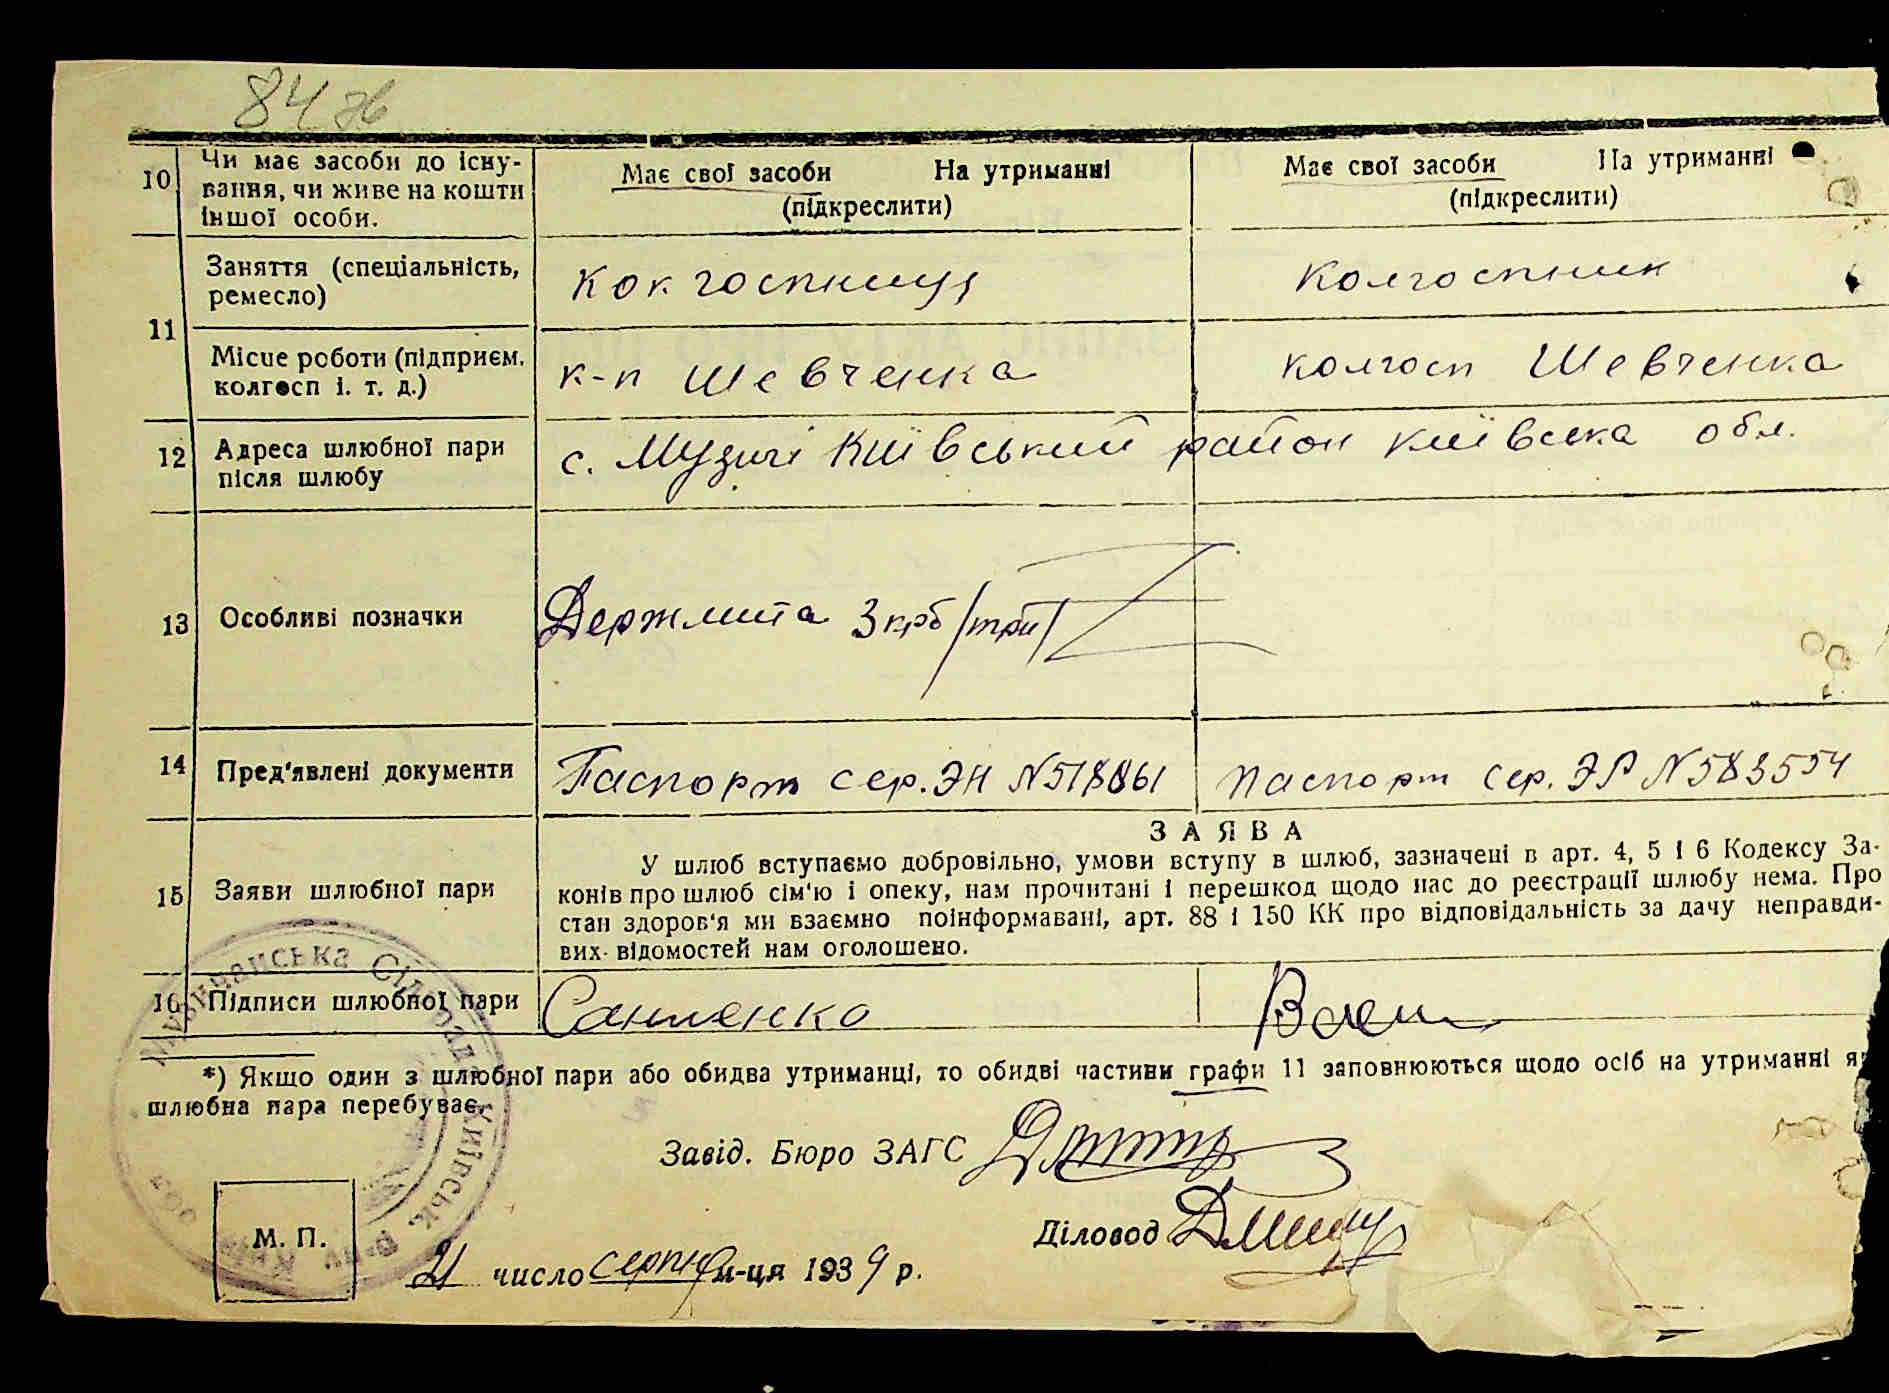 84 зв
10 Чи має засоби до існу-
вання, чи живе на кошти
іншої особи.
Має свої засоби На утриманні
(підкреслити)
Має свої засоби На утриманні
(підкреслити)
11
Заняття (спеціальність,
ремесло)
колгоспниця
колгоспник
Місце роботи (підприєм.
колгосп і. т. д.)
к-п Шевченка
колгосп Шевченка
12 Адреса шлюбної пари
після шлюбу
с. Музичі Київський район Київська обл.
13 Особливі позначки
Держмита 3 крб /три/
14 Пред'явлені документи
Паспорт сер. ЭН N518861
паспорт сер. ЭР N583554
15 Заяви шлюбної пари
ЗАЯВА
У шлюб вступаємо добровільно, умови вступу в шлюб, зазначені в арт. 4, 5 і 6 Кодексу За-
конів про шлюб сім'ю і опеку, нам прочитані і перешкод щодо нас до реєстрації шлюбу нема. Про
стан здоров'я ми взаємно поінформавані, арт. 88 і 150 КК про відповідальність за дачу неправди-
вих відомостей нам оголошено.
16 Підписи шлюбної пари
*) Якщо один з шлюбної пари або обидва утриманці, то обидві частини графи 11 заповнюються щодо осіб на утриманні
шлюбна пара перебуває.
Завід. Бюро ЗАГС
Діловод
М. П.
21 число серпня м-ця 1939 р.
Музичанська Сільрада Київськ. р-ну